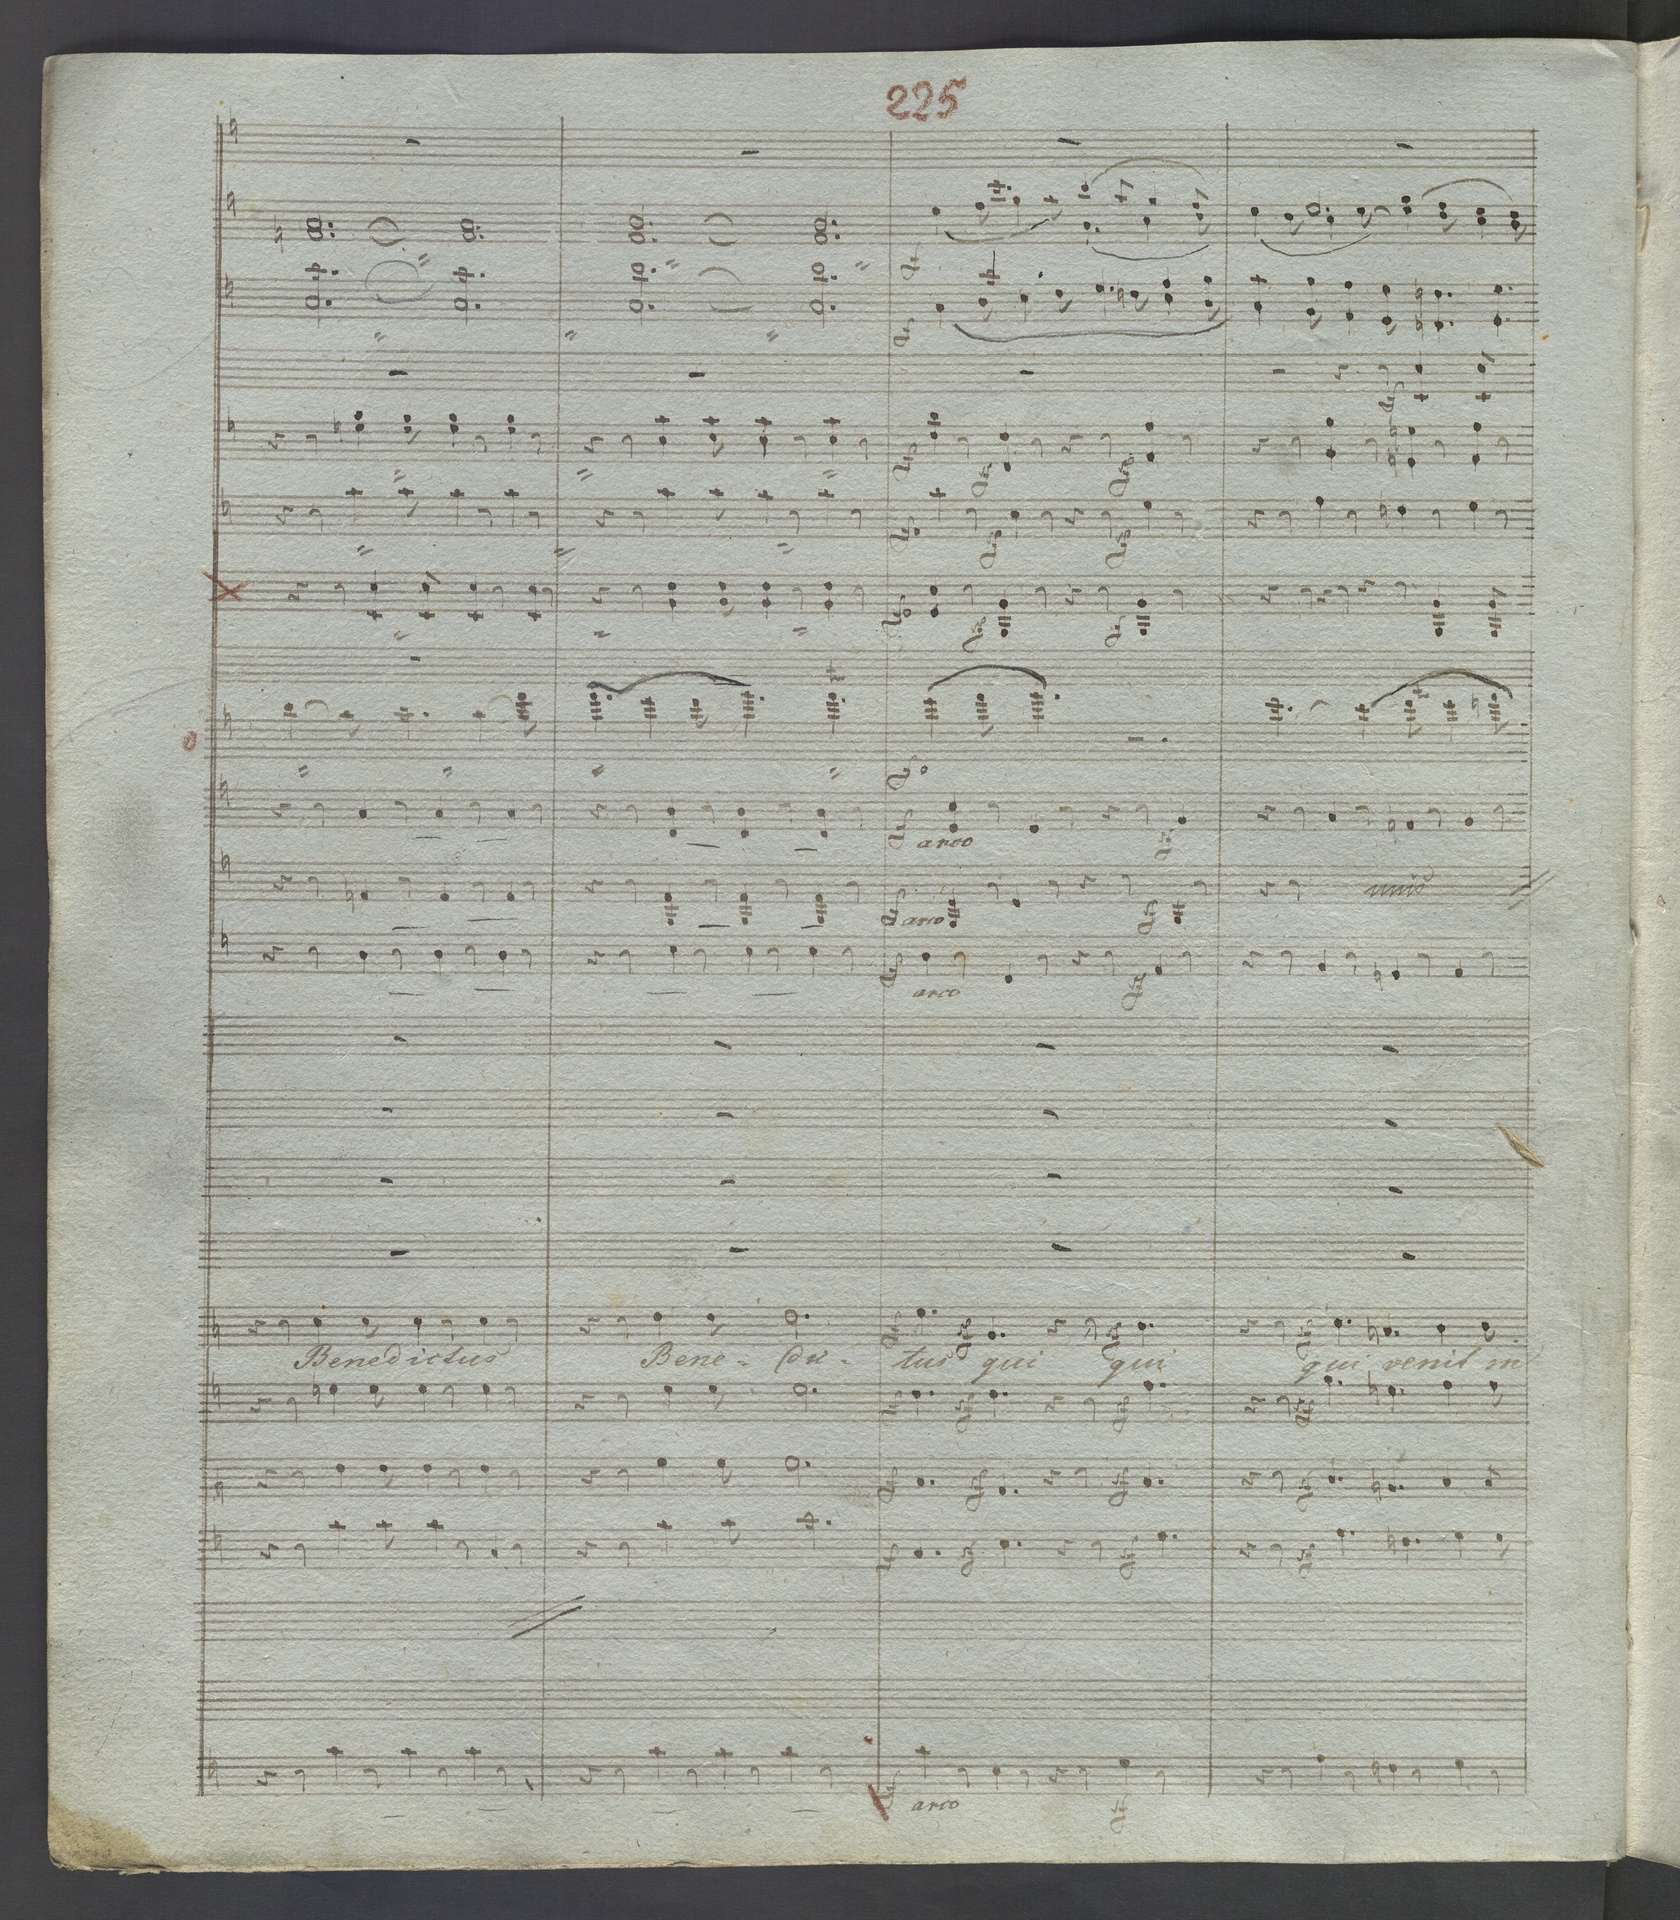 225
arco
unis
arco
arco
Benedictus Bene - dic - tus qui qui qui venit in
arco